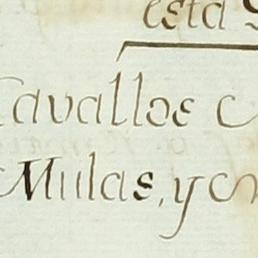 esta
Cavallos
Mulas, y